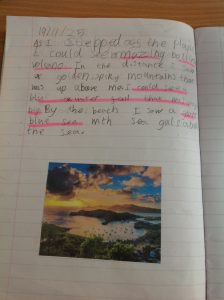 19/11/25
As I stepped off the plane
I could see amazing boiling
volcano. In the distance I saw
golden spiky mountains that
was up above me. I could see a
big water fall that was
big By the beach I saw a
blue sea with sea gulls above
the sea.